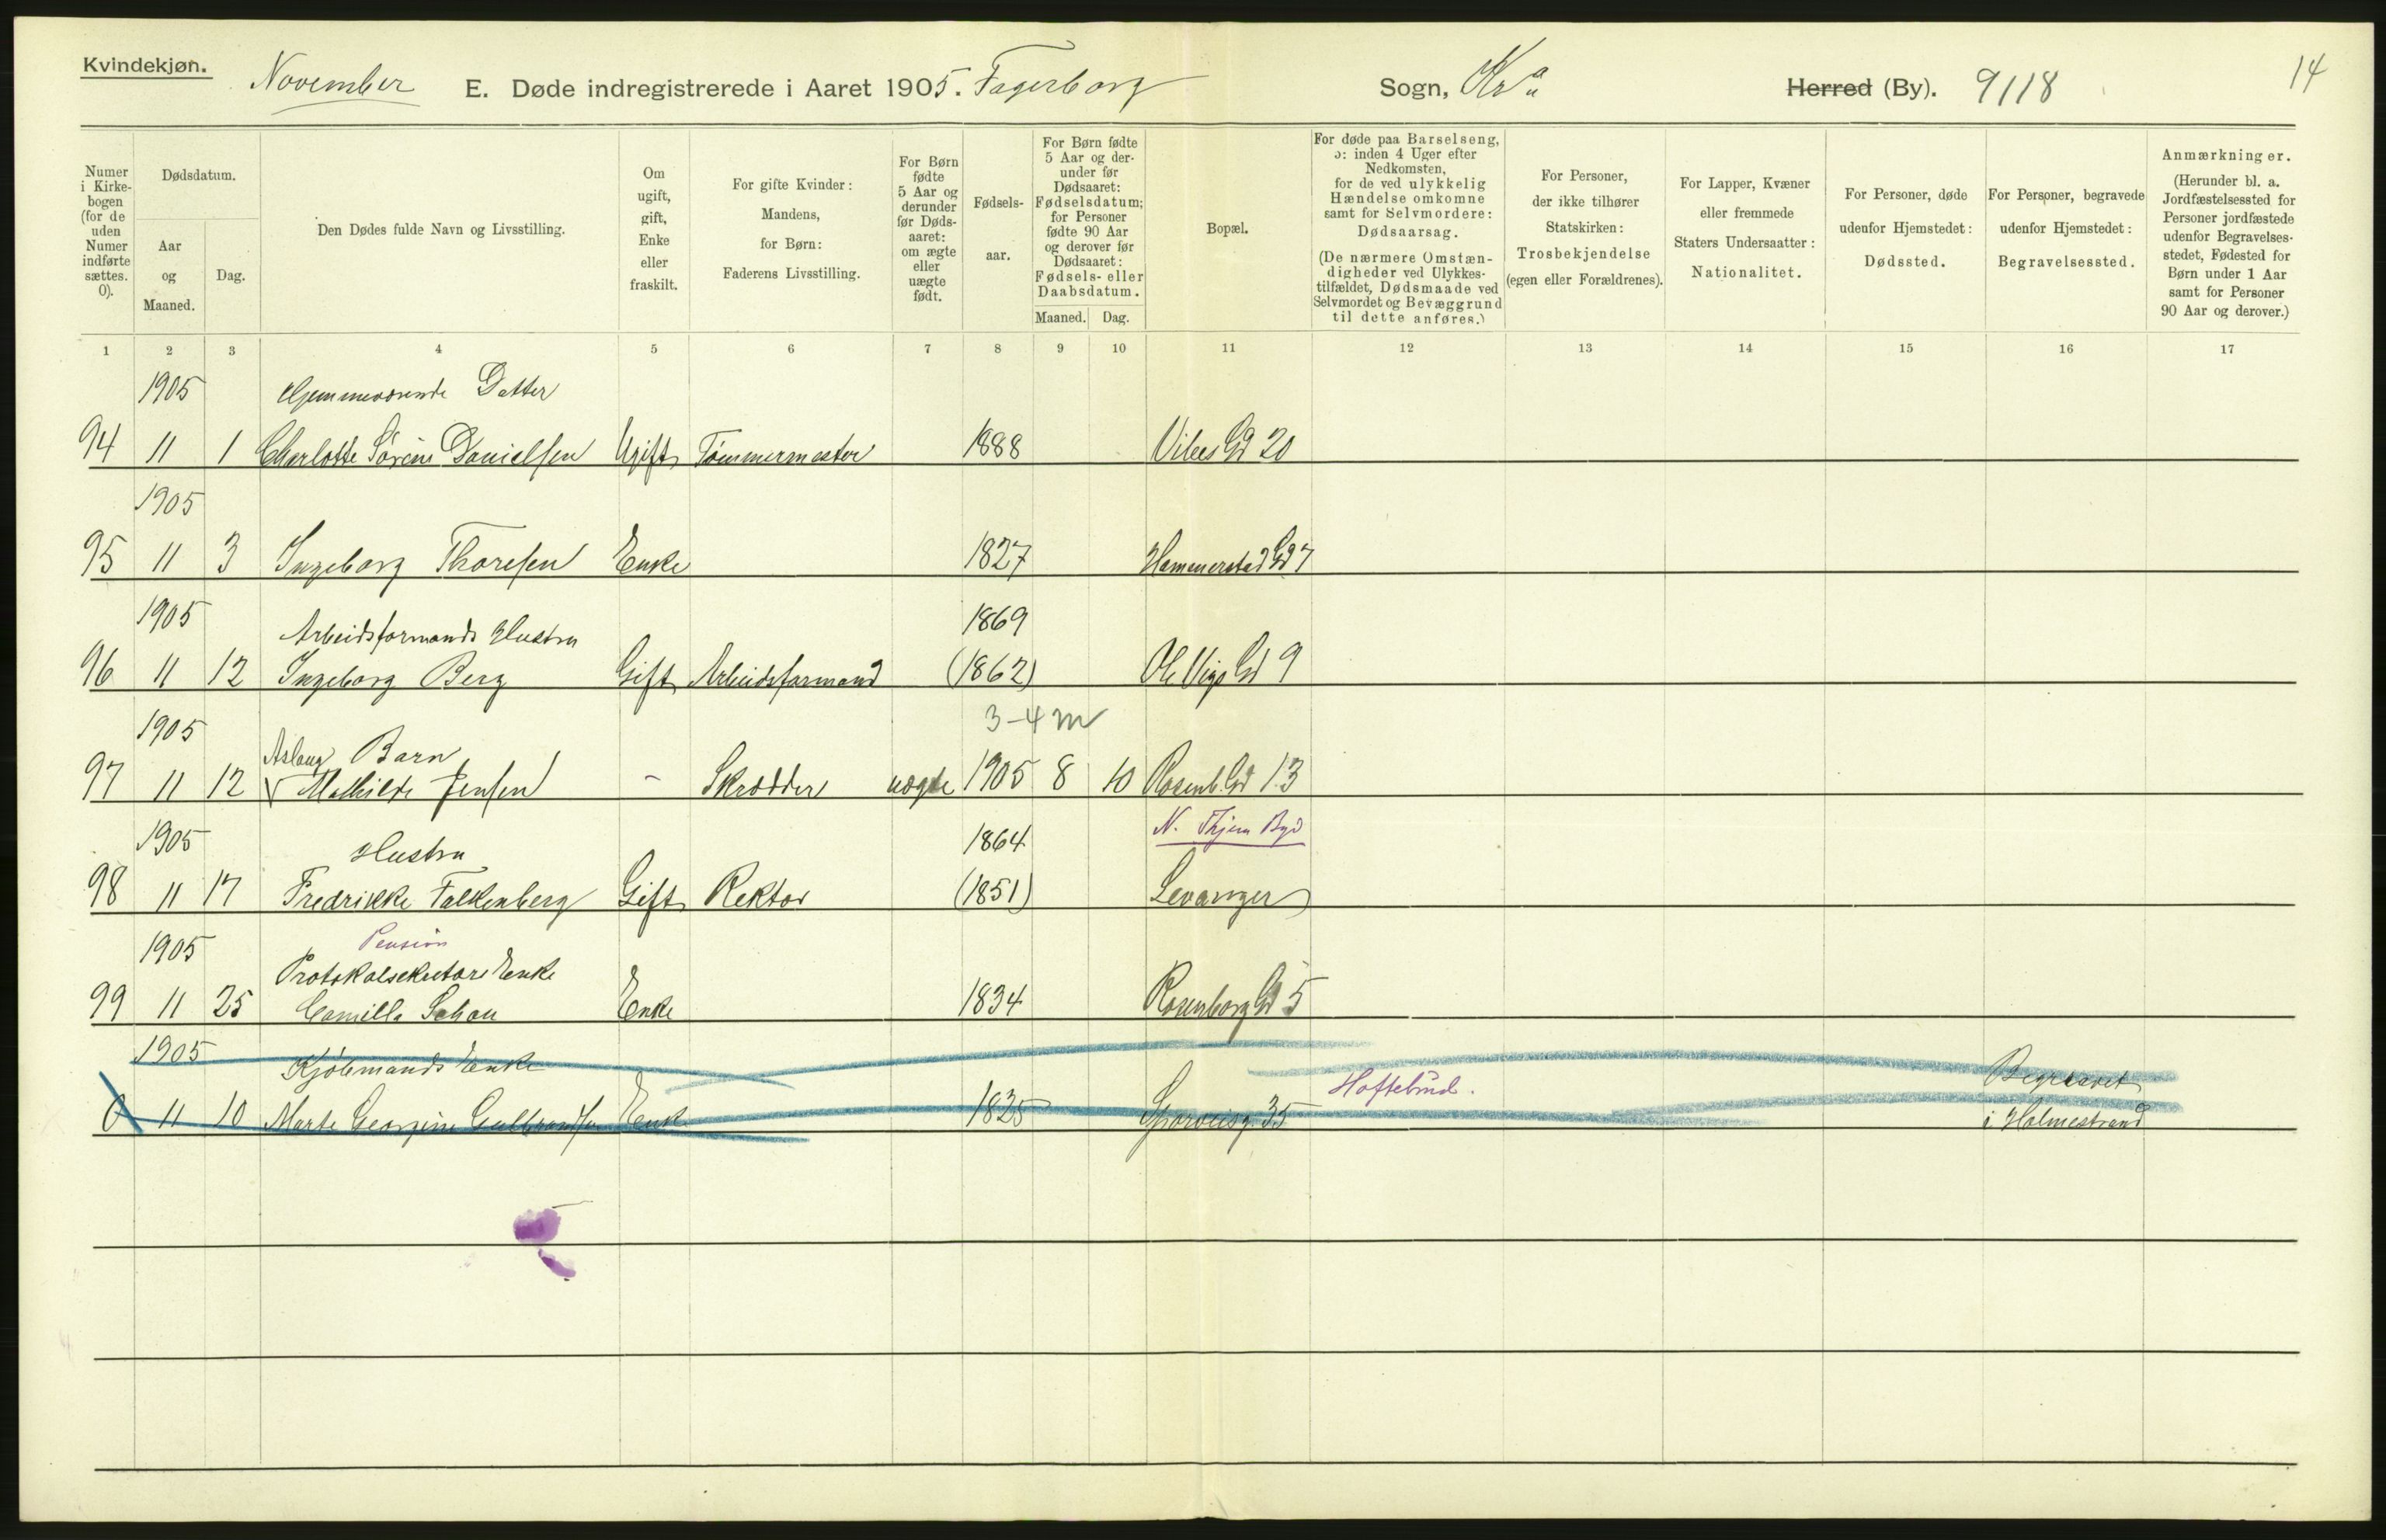 Kvindekjøn.
November E. Døde indregistrerede i Aaret 1905. Fagerborg Sogn, Kra Herred (By). 9118 14
Numer i Kirke-bogen (for de uden Numer indførte sættes. 0).
Dødsdatum.
Aar og Maaned.
Dag.
Den Dødes fulde Navn og Livsstilling.
Om ugift, gift, Enke eller fraskilt.
For gifte Kvinder: Mandens, for Børn: Faderens Livsstilling.
For Børn fødte 5 Aar og derunder før Døds-aaret: om ægte eller uægte født.
Fødsels-aar.
For Børn fødte 5 Aar og der-under før Dødsaaret: Fødselsdatum; for Personer fødte 90 Aar og derover før Dødsaaret: Fødsels- eller Daabsdatum.
Maaned. Dag.
Bopæl.
For døde paa Barselseng, ɔ: inden 4 Uger efter Nedkomsten, for de ved ulykkelig Hændelse omkomne samt for Selvmordere: Dødsaarsag.
(De nærmere Omstæn-digheder ved Ulykkes-tilfældet, Dødsmaade ved Selvmordet og Bevæggrund til dette anføres.)
For Personer, der ikke tilhører Statskirken: Trosbekjendelse (egen eller Forældrenes).
For Lapper, Kvæner eller fremmede Staters Undersaatter: Nationalitet.
For Personer, døde udenfor Hjemstedet: Dødssted.
For Personer, begravede udenfor Hjemstedet: Begravelsessted.
Anmærkninger.
(Herunder bl. a. Jordfæstelsessted for Personer jordfæstede udenfor Begravelses-stedet, Fødested for Børn under 1 Aar samt for Personer 90 Aar og derover.)
1 2 3 4 5 6 7 8 9 10 11 12 13 14 15 16 17
1905 Hjemmeværende Datter
94 11 1 Charlotte Sørine Danielsen Ugift Tømmermester 1888 Vibes Gd 20
1905
95 11 3 Ingeborg Thoresen Enke 1827 Hammerstad Gd 7
1905 Arbeidsformands Hustru 1869
96 11 12 Ingeborg Berg Gift Arbeidsformand (1862) Ole Vigs Gd 9
1905 Aslaug Barn 3-4 m
97 11 12 Mathilde Jensen - Skrædder uægte 1905 8 10 Rosenb. Gd 13
1905 Hustru 1864 N. Thjem Byd
98 11 17 Fredrikke Falkenberg Gift Rektor (1851) Levanger
1905 Pension
Protokolsekretærs Enke
99 11 25 Camilla Schou Enke 1834 Rosenborg Gd 5
1905 Kjøbmands Enke Haftebind. Begravet
0 11 10 Marte Georgine Gulbrandsen Enke 1825 Sporveisg. 35 i Holmestrand